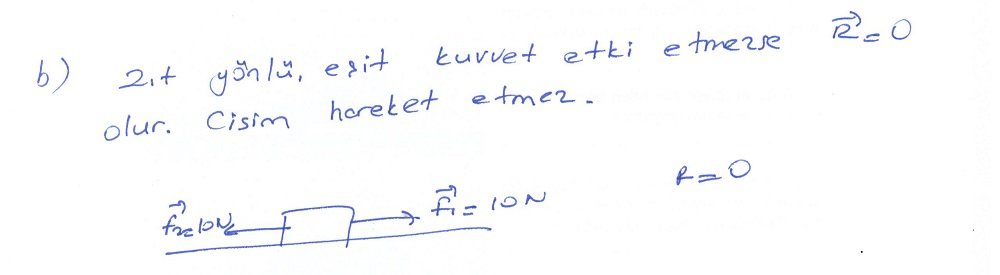 b) Zıt yönlü, eşit kuvvet etki etmezse R⃗=0
olur. Cisim hareket etmez.
R=0
F⃗₂=10N F⃗₁=10N